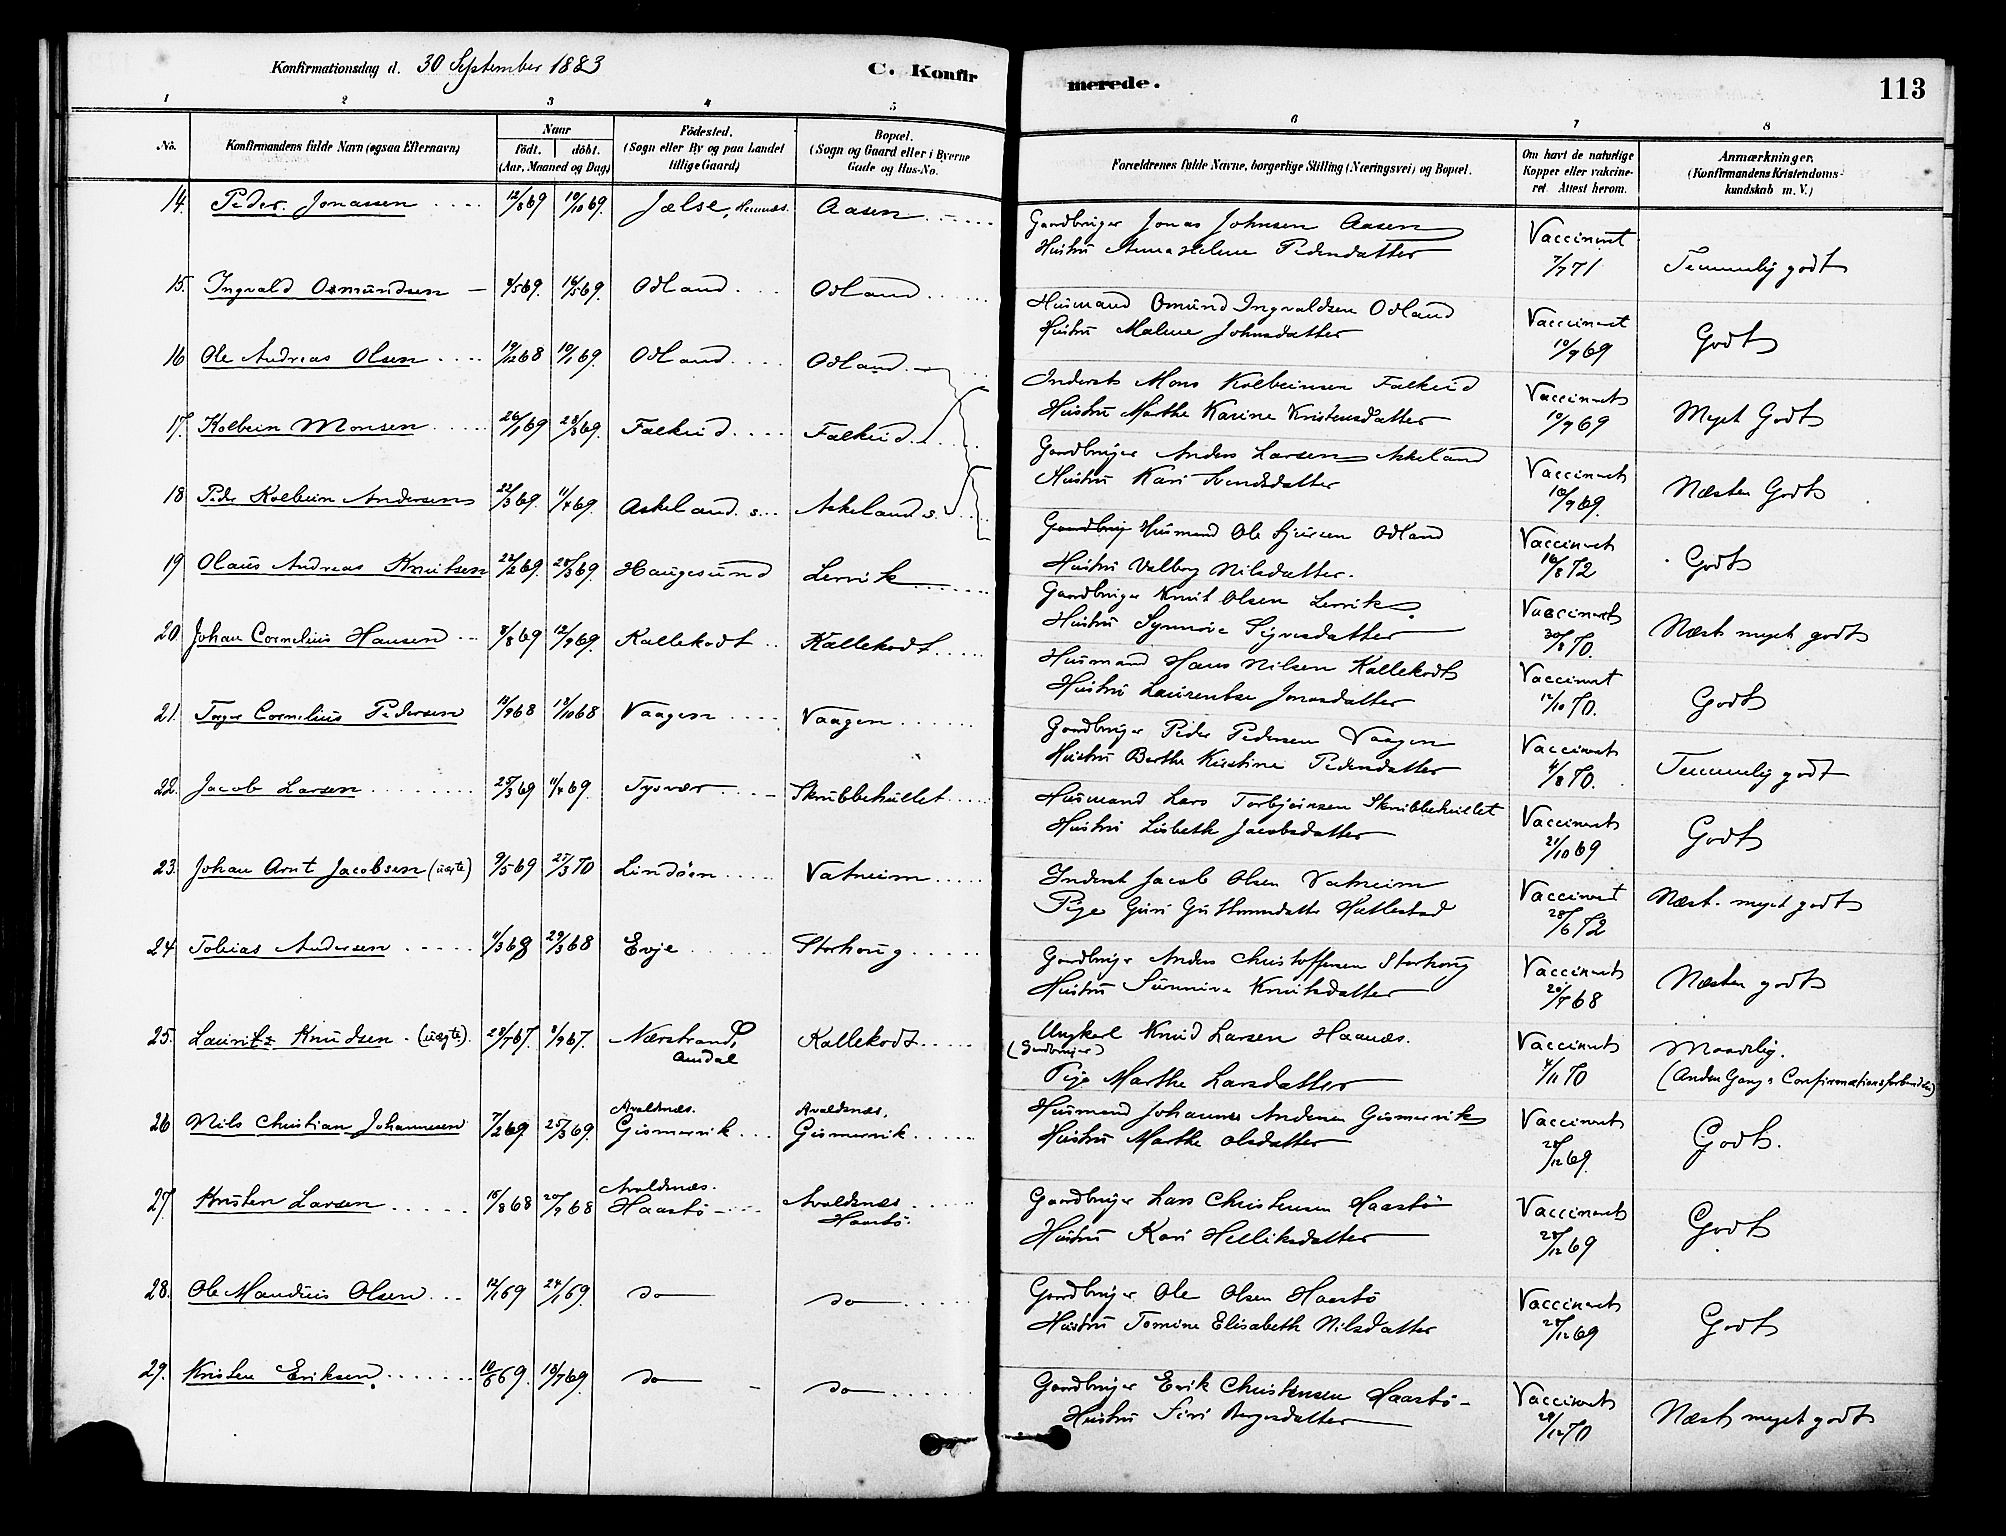 Konfirmationsdag d. 30 September 1883
C. Konfirmerede.
113
1 2 3 4 5 6 7 8
No.
Konfirmandens fulde Navn (ogsaa Efternavn)
Naar
födt. döbt.
(Aar, Maaned og Dag)
Födested.
(Sogn eller By og paa Landet
tillige Gaard)
Bopæl.
(Sogn og Gaard eller i Byerne
Gade og Hus-No.
Forældrenes fulde Navne, borgerlige Stilling (Næringsvei) og Bopæl.
Om havt de naturlige
Kopper eller vakcine-
ret. Attest herom.
Anmærkninger.
(Konfirmandens Kristendoms-
kundskab m. V.)
14. Peder Jonassen 12/8 69 10/10 69. Jælse, Aasen
Gaardbruger Jonas Johnsen Aasen
Hustru Anna Helene Pedersdatter
Vaccineret
7/7 71
Temmelig godt
15. Ingvald Osmundsen 4/5 69. 16/5 69 Odland Odland
Husmand Omund Ingvaldsen Odland
Hustru Malene Johnsdatter
Vaccineret
10/9 69
Godt
16 Ole Andreas Olsen 19/12 68 10/1 69. Odland Odland
Inderst Mons Kolbeinsen Falkeid
Hustru Marthe Karine Kristensdatter
Vaccineret
10/9 69
Meget Godt
17. Kolbein Monsen 26/1 69 28/3 69. Falkeid Falkeid
Gaardbruger Anders Larsen Askeland
Hustru Kari Svendsdatter
Vaccineret
10/9 69.
Næsten Godt
18 Peder Kolbein Andersen 22/3 69. 11/4 69. Askeland s. Askeland s.
Gaardbrug Husmand Ole Sjursen Odland
Hustru Valborg Nilsdatter.
Vaccineret
16/8 72
Godt
19 Olaus Andreas Knutsen 22/2 69. 28/3 69. Haugesund Lervik
Gaardbruger Knut Olsen Lervik
Hustru Synnøve Sjursdatter
Vaccineret
30/8 70.
Næst meget godt
20. Johan Cornelius Hansen 8/8 69 12/9 69. Kallekodt Kallekodt
Husmand Hans Nilsen Kallekodt
Hustru Laurentse Jonasdatter
Vaccineret
12/10 70.
Godt
21. Torger Cornelius Pedersen 13/9 68 18/10 68 Vaagen Vaagen
Gaardbruger Peder Pedersen Vaagen
Hustru Berthe Kirstine Pedersdatter
Vaccineret
4/8 70.
Temmelig godt
22. Jacob Larsen 25/3 69 11/4 69. Tysvær Skrubbehullet
Husmand Lars Torbjørnsen Skrubbehullet
Hustru Lisbeth Jacobsdatter
Vaccineret
21/10 69
Godt
23. Johan Arnt Jacobsen (uægte) 9/5 69 27/3 70 Lindøen Vatneim
Inderst Jacob Olsen Vatneim
Pige Guri Guttormsdatter Hatlestad
Vaccineret
28/6 72
Næst. meget godt
24. Tobias Andersen 1/3 68 29/3 68 Evje Storhoug
Gaardbruger Anders Christoffersen Storhoug
Hustru Sunniva Knutsdatter
Vaccineret
20/7 68
Næsten godt
25. Lauritz Knudsen. (uægte). 28/7 67. 8/9 67. Nærstrand, Kallekodt
Amdal
Ungkarl Knud Larsen Haanæs.
(Gaardbruger)
Pige Marthe Larsdatter
Vaccineret
4/11 70
Maadelig.
(Anden Gang s Confirmationsforberedelse)
26 Nils Christian Johannesen 7/2 69. 25/3 69. Avaldsnæs. Gismervik Avaldsnæs. Gismervik
Husmand Johannes Andersen Gismervik
Hustru Marthe Olsdatter
Vaccineret
28/12 69.
Godt.
27. Kristen Larsen 15/8 68 20/9 68 Avaldsnæs. Haastö Avaldsnæs Haastö.
Gaardbruger Lars Christensen Haastö
Hustru Kari Helliksdatter
Vaccineret
28/12 69
Godt
28. Ole Mandius Olsen 12/1 69 24/1 69. do do
Gaardbruger Ole Olsen Haastö
Hustru Tomine Elisabeth Nilsdatter
Vaccineret
28/12 69
Godt
29. Kristen Eriksen 10/6 69. 18/7 69. do do
Gaardbruger Erik Christensen Haastö
Hustru Siri Borgesdatter
Vaccineret
28/12 70
Næst meget godt